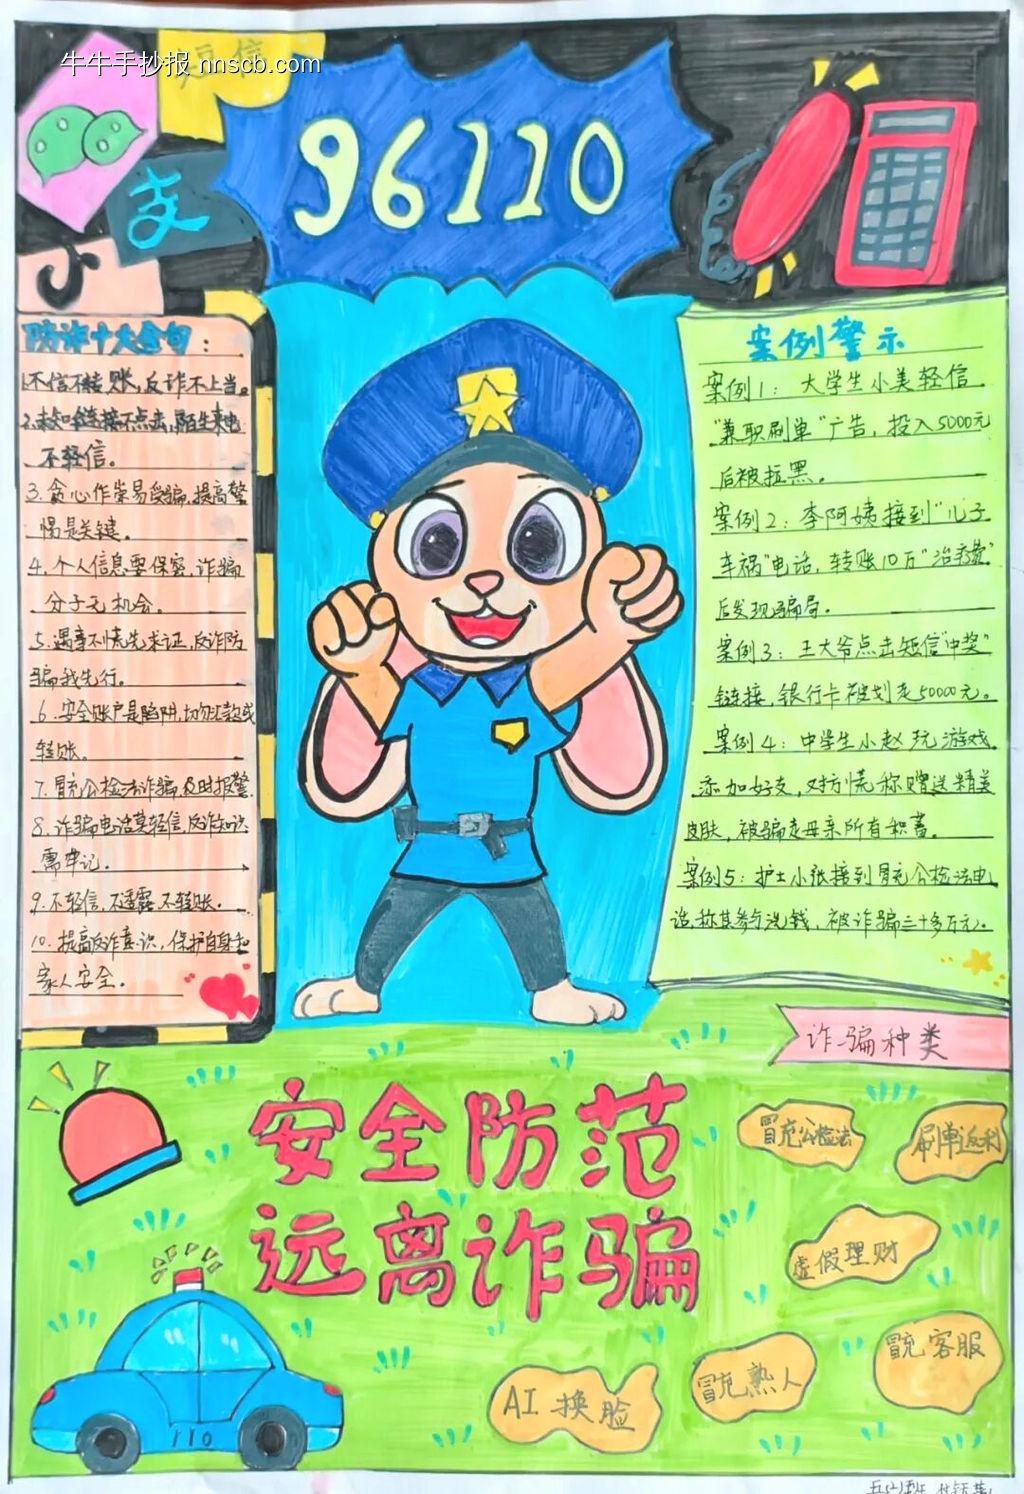 牛牛手抄报 nnscb.com
短信
96110
支
防诈十大金句：
1.不信不转账,反诈不上当。
2.未知链接不点击,陌生来电
不轻信。
3.贪心作祟易受骗,提高警
惕是关键。
4.个人信息要保密,诈骗
分子无机会。
5.遇事不慌先求证,反诈防
骗我先行。
6.安全账户是陷阱,切勿汇款或
转账。
7.冒充公检法诈骗,及时报警.
8.诈骗电话莫轻信,反诈知识
需牢记.
9.不轻信,不透露,不转账.
10.提高反诈意识,保护自身和
家人安全.
案例警示
案例1：大学生小美轻信
"兼职刷单"广告,投入5000元
后被拉黑。
案例2：李阿姨接到"儿子
车祸"电话,转账10万"治疗款"
后发现骗局。
案例3：王大爷点击短信"中奖"
链接,银行卡被划走50000元。
案例4：中学生小赵玩游戏
添加好友,对方慌称赠送精美
皮肤,被骗走母亲所有积蓄。
案例5：护士小张接到冒充公检法电
话,称其参与洗钱,被诈骗三十多万元。
诈骗种类
安全防范
远离诈骗
冒充公检法
刷单返利
虚假理财
冒充客服
冒充熟人
AI换脸
110
五(2)班